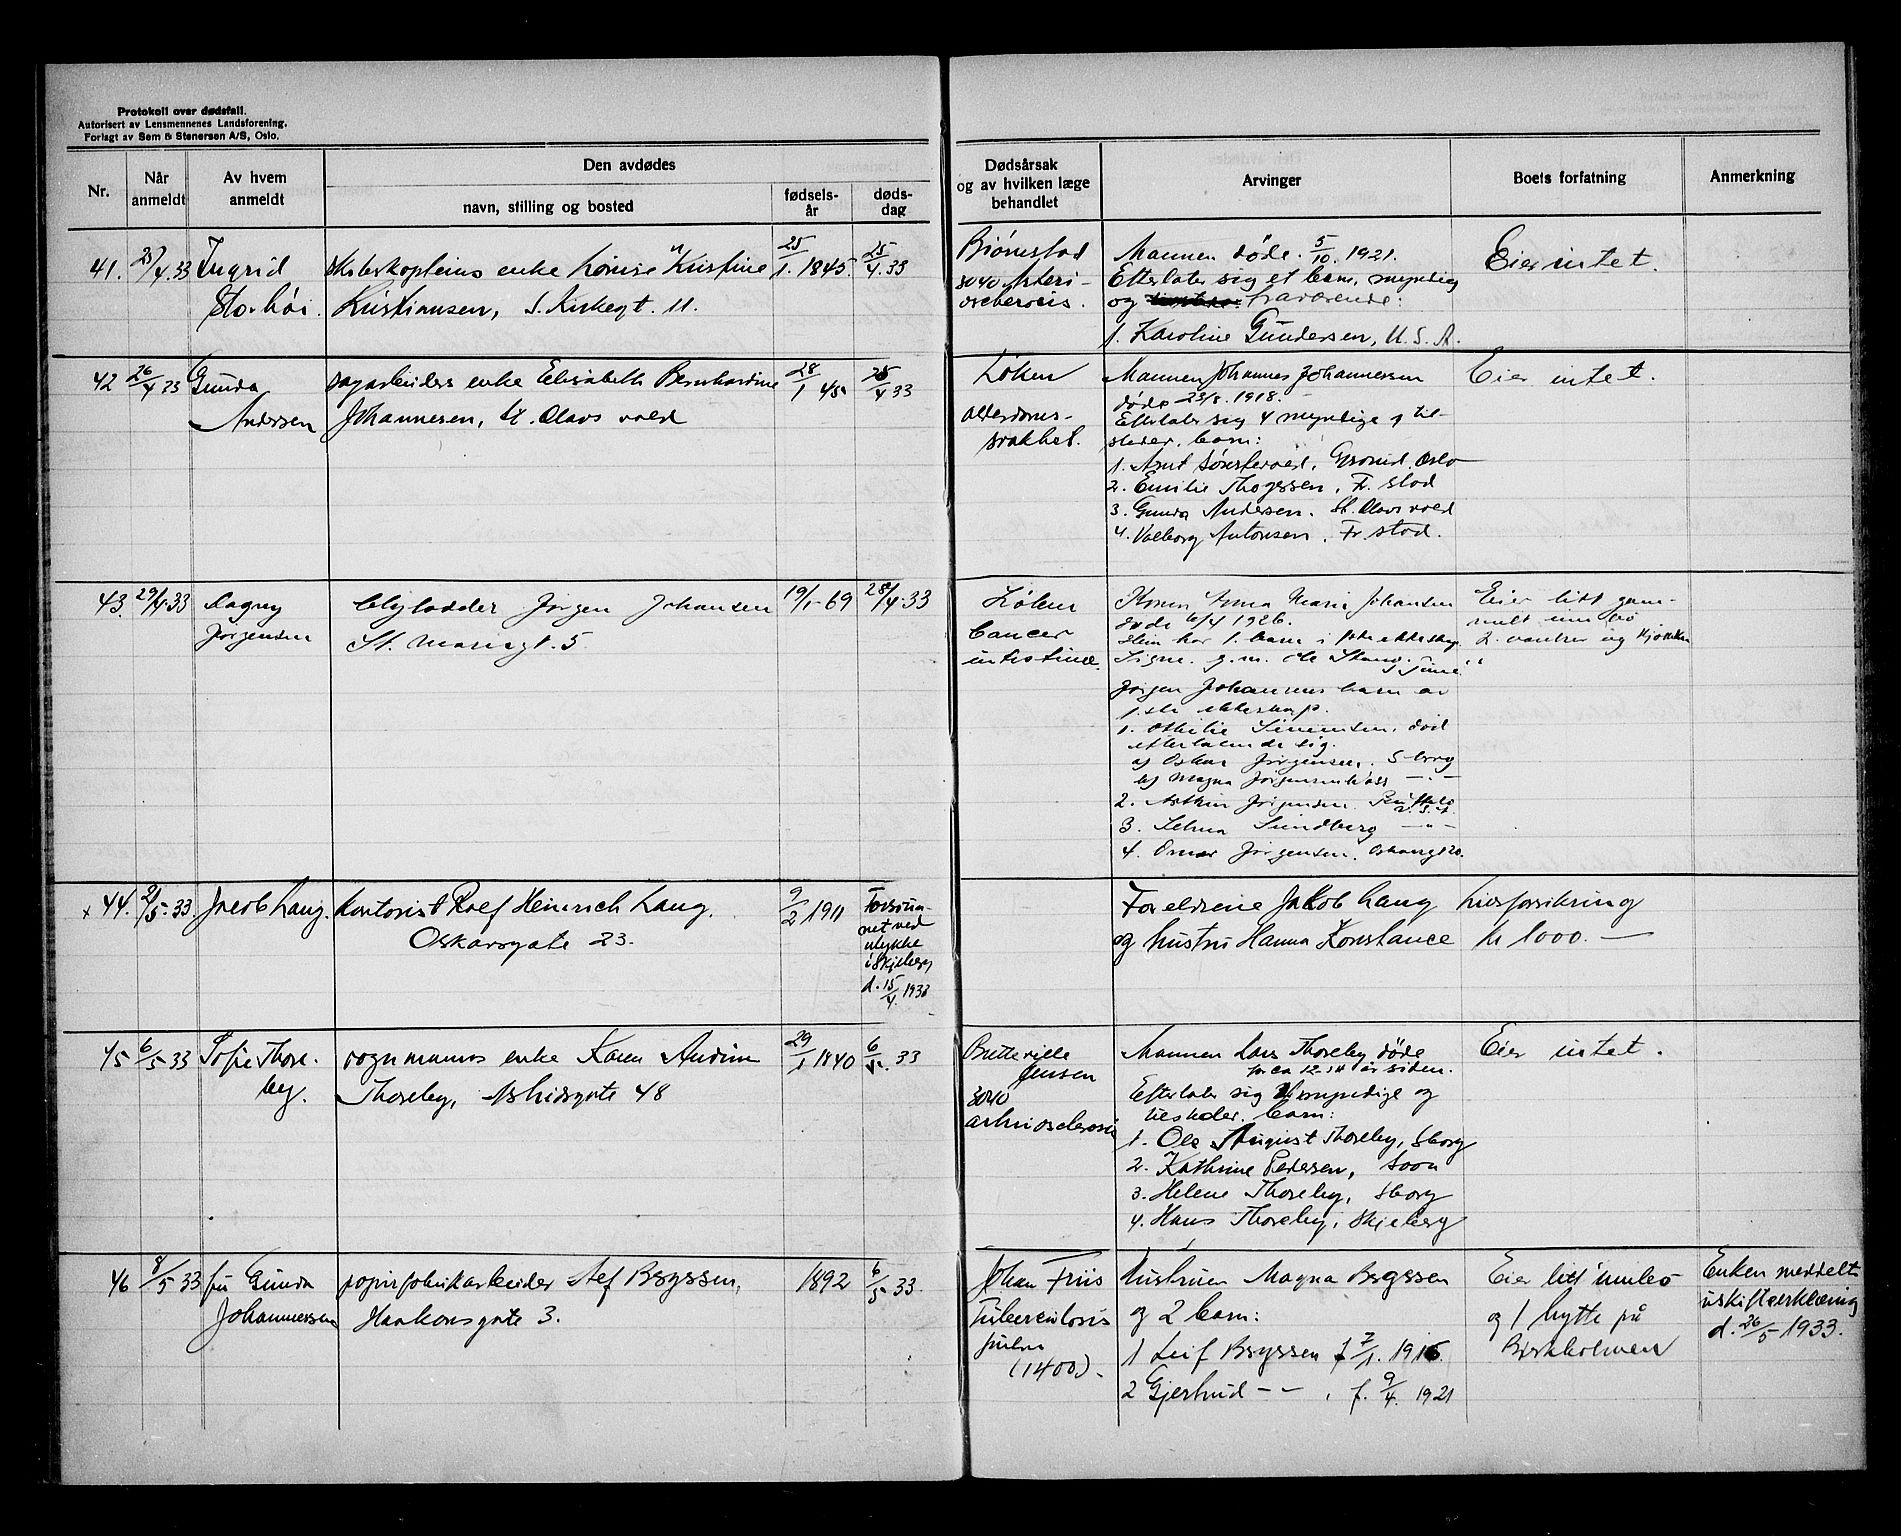 Protokoll over dødsfall.
Autorisert av Lensmennenes Landsforening.
Forlagt av Sem & Stenersen A/S, Oslo.
Nr.
Når anmeldt
Av hvem anmeldt
Den avdødes
navn, stilling og bosted
fødsels-
år
døds-
dag
Dødsårsak
og av hvilken læge
behandlet
Arvinger
Boets forfatning
Anmerkning
41. 25/4.33 Ingrid
enke Lovise "Kristine
25/1. 1845.
25/4.33
Kristiansen, S. Kirkegt. 11.
Bjørnstad
3040 Arteri-
oscherosis.
Mannen døde. 5/10. 1921.
Efterlater sig et barn, myndig
og fraværende:
1. Karoline Gundersen, U.S.A.
Eier intet.
42 26/4 33 Gunda
Andersen
sagarbeiders enke Elisabeth Bernhardine
Johannesen, St. Olavs vold
28/1 45
25/4 33
Løken
alderdoms-
svakhet.
Mannen Johannes Johannessen
døde 23/8. 1918.
Efterlater sig 4 myndige og til-
steder. barn:
1. Sønstevold, Oslo
2. Emilie Fr. stad
3. Gunda Andersen. St. Olavs vold
4. Valborg Antonsen. Fr. stad.
Eier intet.
43. 29/4.33 Dagny
Jørgensen
Jørgen Johansen
St. Mariegt. 5.
19/1-69
28/4.33
Løken
Cancer
intestinal.
Konen Anna Marie Johansen
døde 6/4 1926.
Hun har 1. barn i
Signe. g.m. Ole
Jørgen Johansens barn av
1ste ekteskap.
1. Othilie Simensen, død
efterlatende sig.
a) Oskar Jørgensen. S-borg
b) Magna
2. Arthur Jørgensen.
U.S.A.
3. Selma Sundberg — " —
4. Omar Jørgensen.
Eier litt gam-
melt innbo
x 44. 2/5.33. Jacob Lang.
kontorist Rolf Heinrich Lang.
Oskarsgate 23.
9/2 1911
Forsvun-
net ved
ulykke
i Skjeberg
d. 15/4. 1933
Foreldrene Jakob Lang
og hustru Hanna Konstance
Livsforsikring
kr 1000. —
45 6/5 33 Sofie Thore-
by.
vognmanns enke Karen Andrine
Thoreby, Astridsgate 48
29/1 1840
6/5. 33
Jensen
3040
Mannen Lars Thoreby døde
for ca 12-14 år siden.
Efterlater sig 4 myndige og
tilsteder. barn:
1. Ole August Thoreby, Sborg
2. Kathrine Pedersen, Soon
3. Helene Thoreby, Sborg
4. Hans Thoreby, Skjeberg
Eier intet.
46 8/5 33 fru Gunda
Johannessen
papirfabrikarbeider
Haakonsgate 3.
1892
6/5 33.
Johan Friis
Tuberculosis
pulm
(1400).
Hustruen Magna
og 2 barn:
1 Leif f 7/1. 1916.
2 Gjertrud — " — , f. 9/4. 1921
Eier litt innbo
og 1 hytte på
Enken meddelt
uskifteerklæring
d. 26/5 1933.